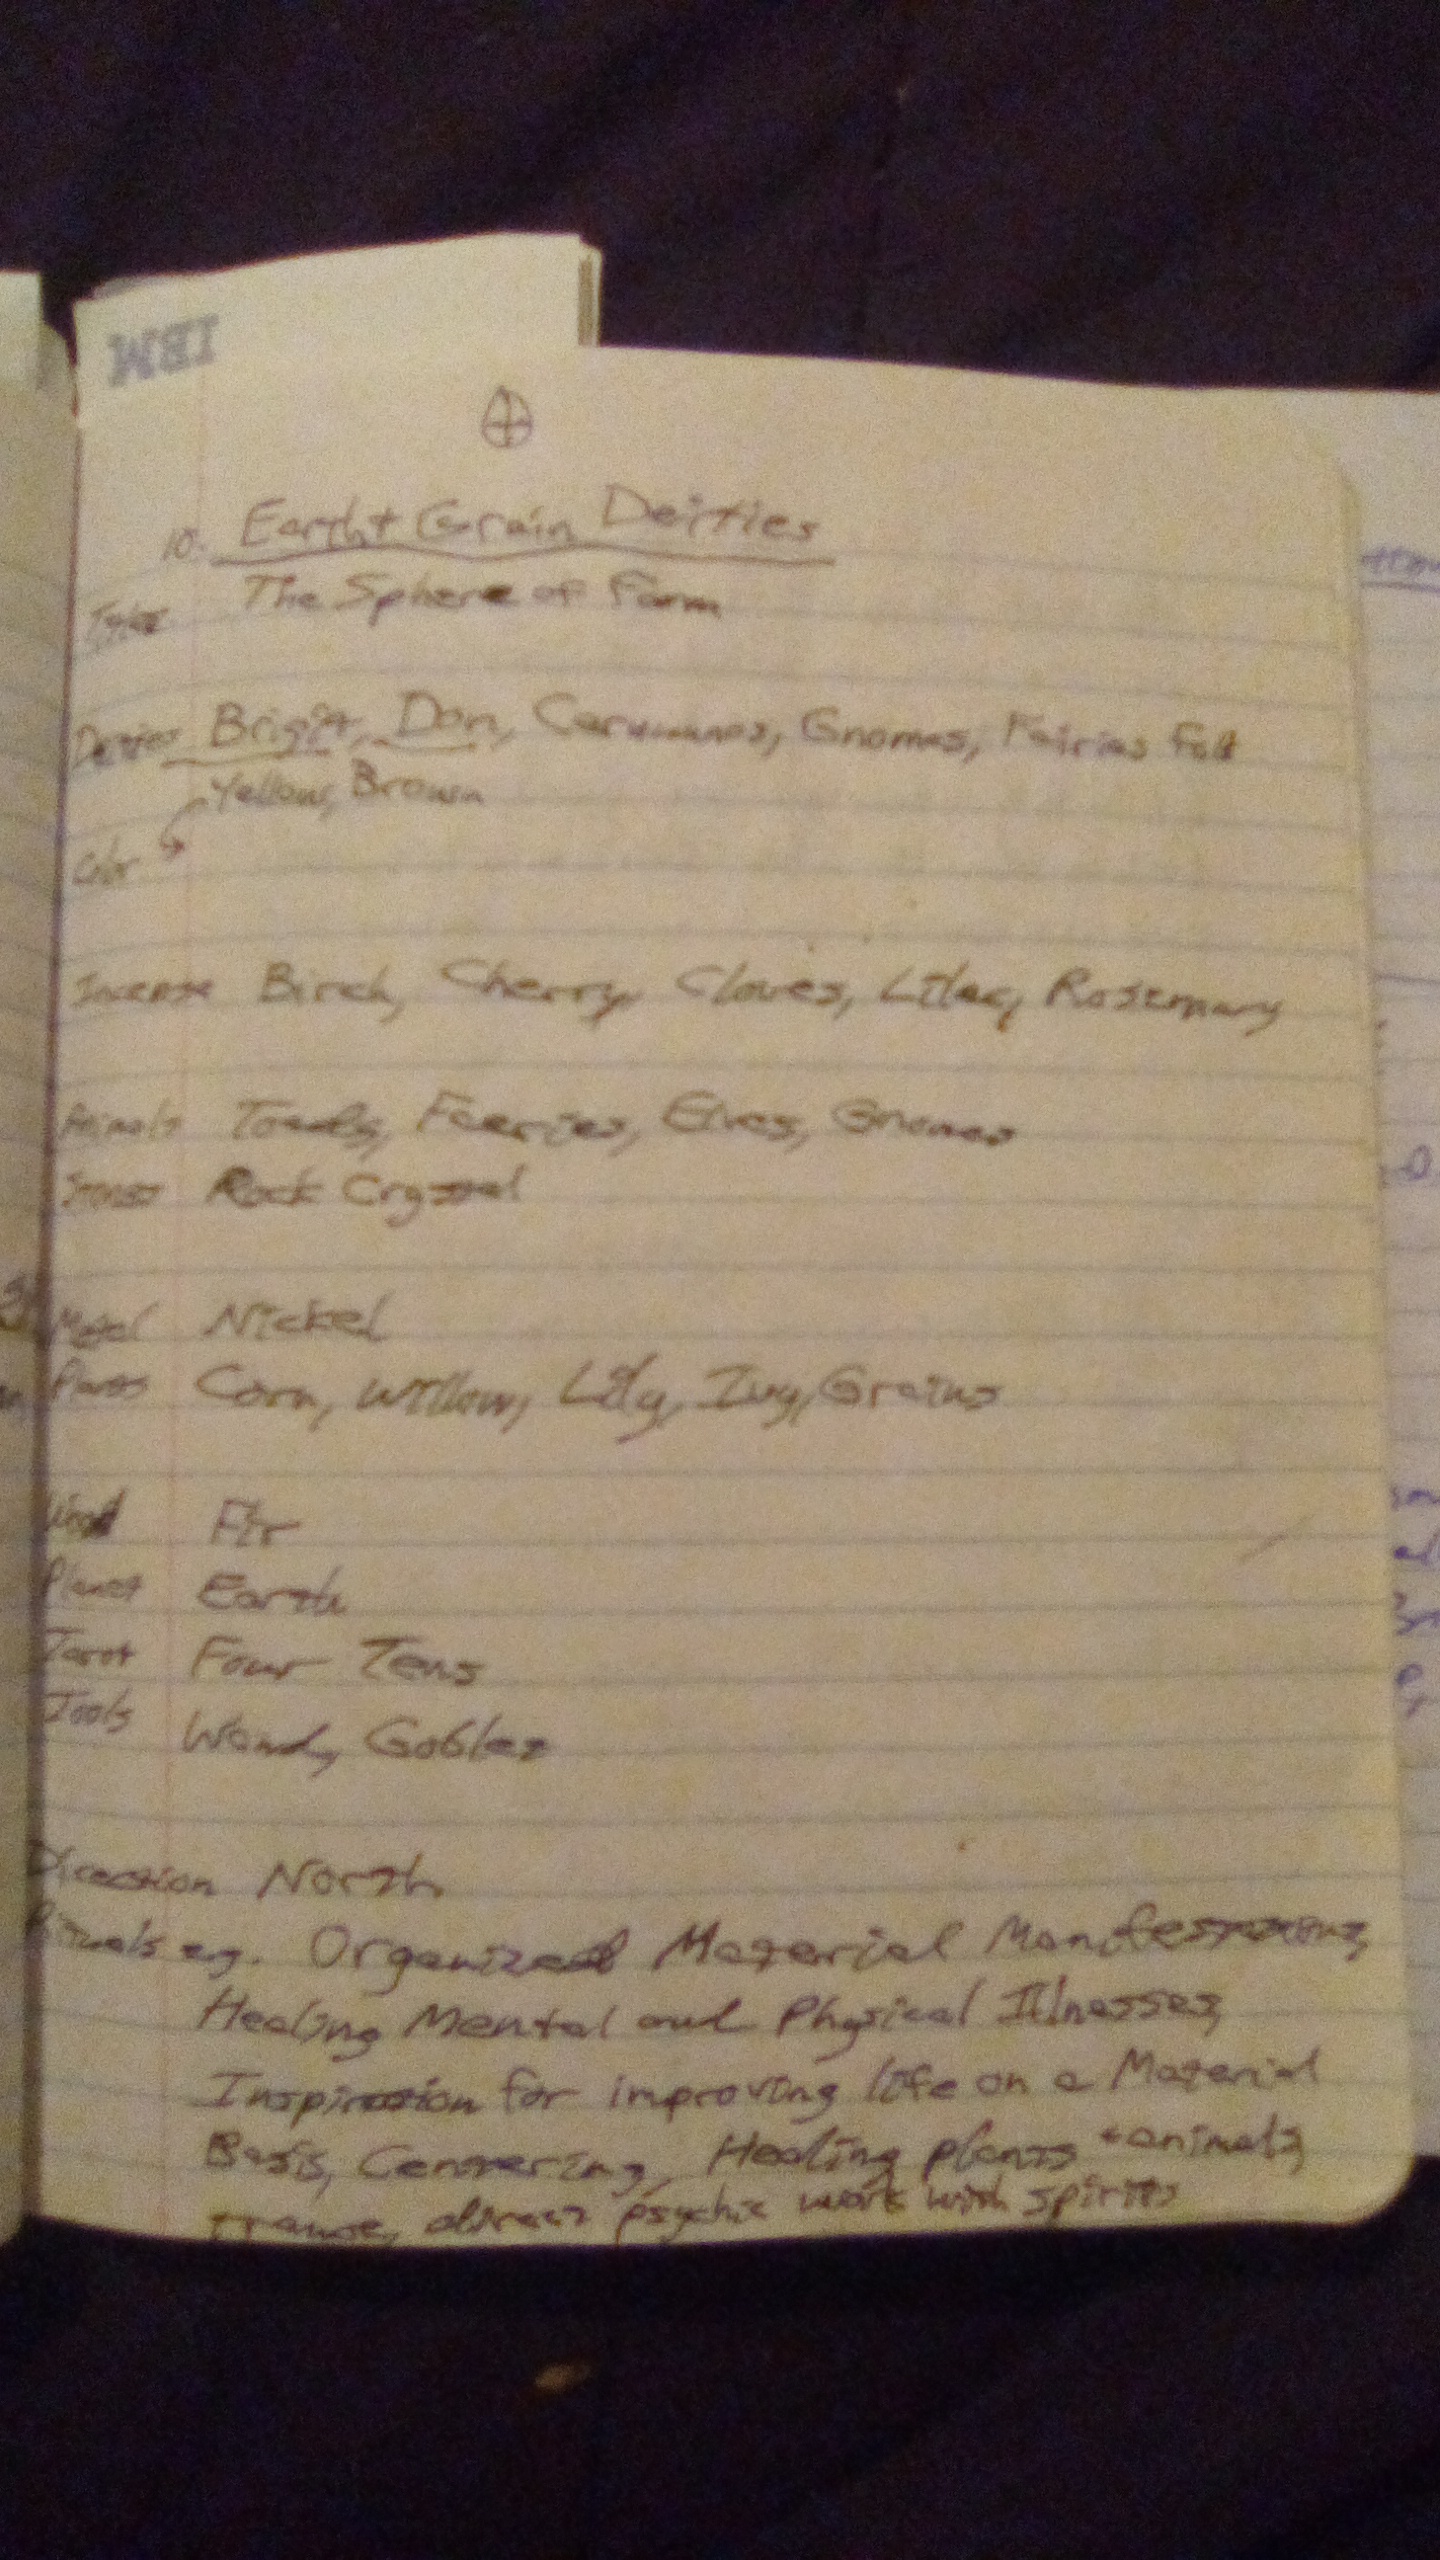 IBM
10. Earth + Grain Deities
Title The Sphere of Form
Deities Brigit, Don, Cernunnos, Gnomes, Fairies Folk
Yellow, Brown
Color
Incense Birch, Cherry, Cloves, Lilac, Rosemary
Animals Toads, Faeries, Elves, Gnomes
Stones Rock Crystal
Metal Nickel
Plants Corn, Willow, Lily, Ivy, Grains
Wood Fir
Planet Earth
Tarot Four Tens
Tools Wand, Goblet
Direction North
Rituals e.g. Organized Material Manifestations,
Healing Mental and Physical Illnesses,
Inspiration for improving life on a Material
Basis, Centering, Healing plants + animals,
trance, direct psychic work with spirits